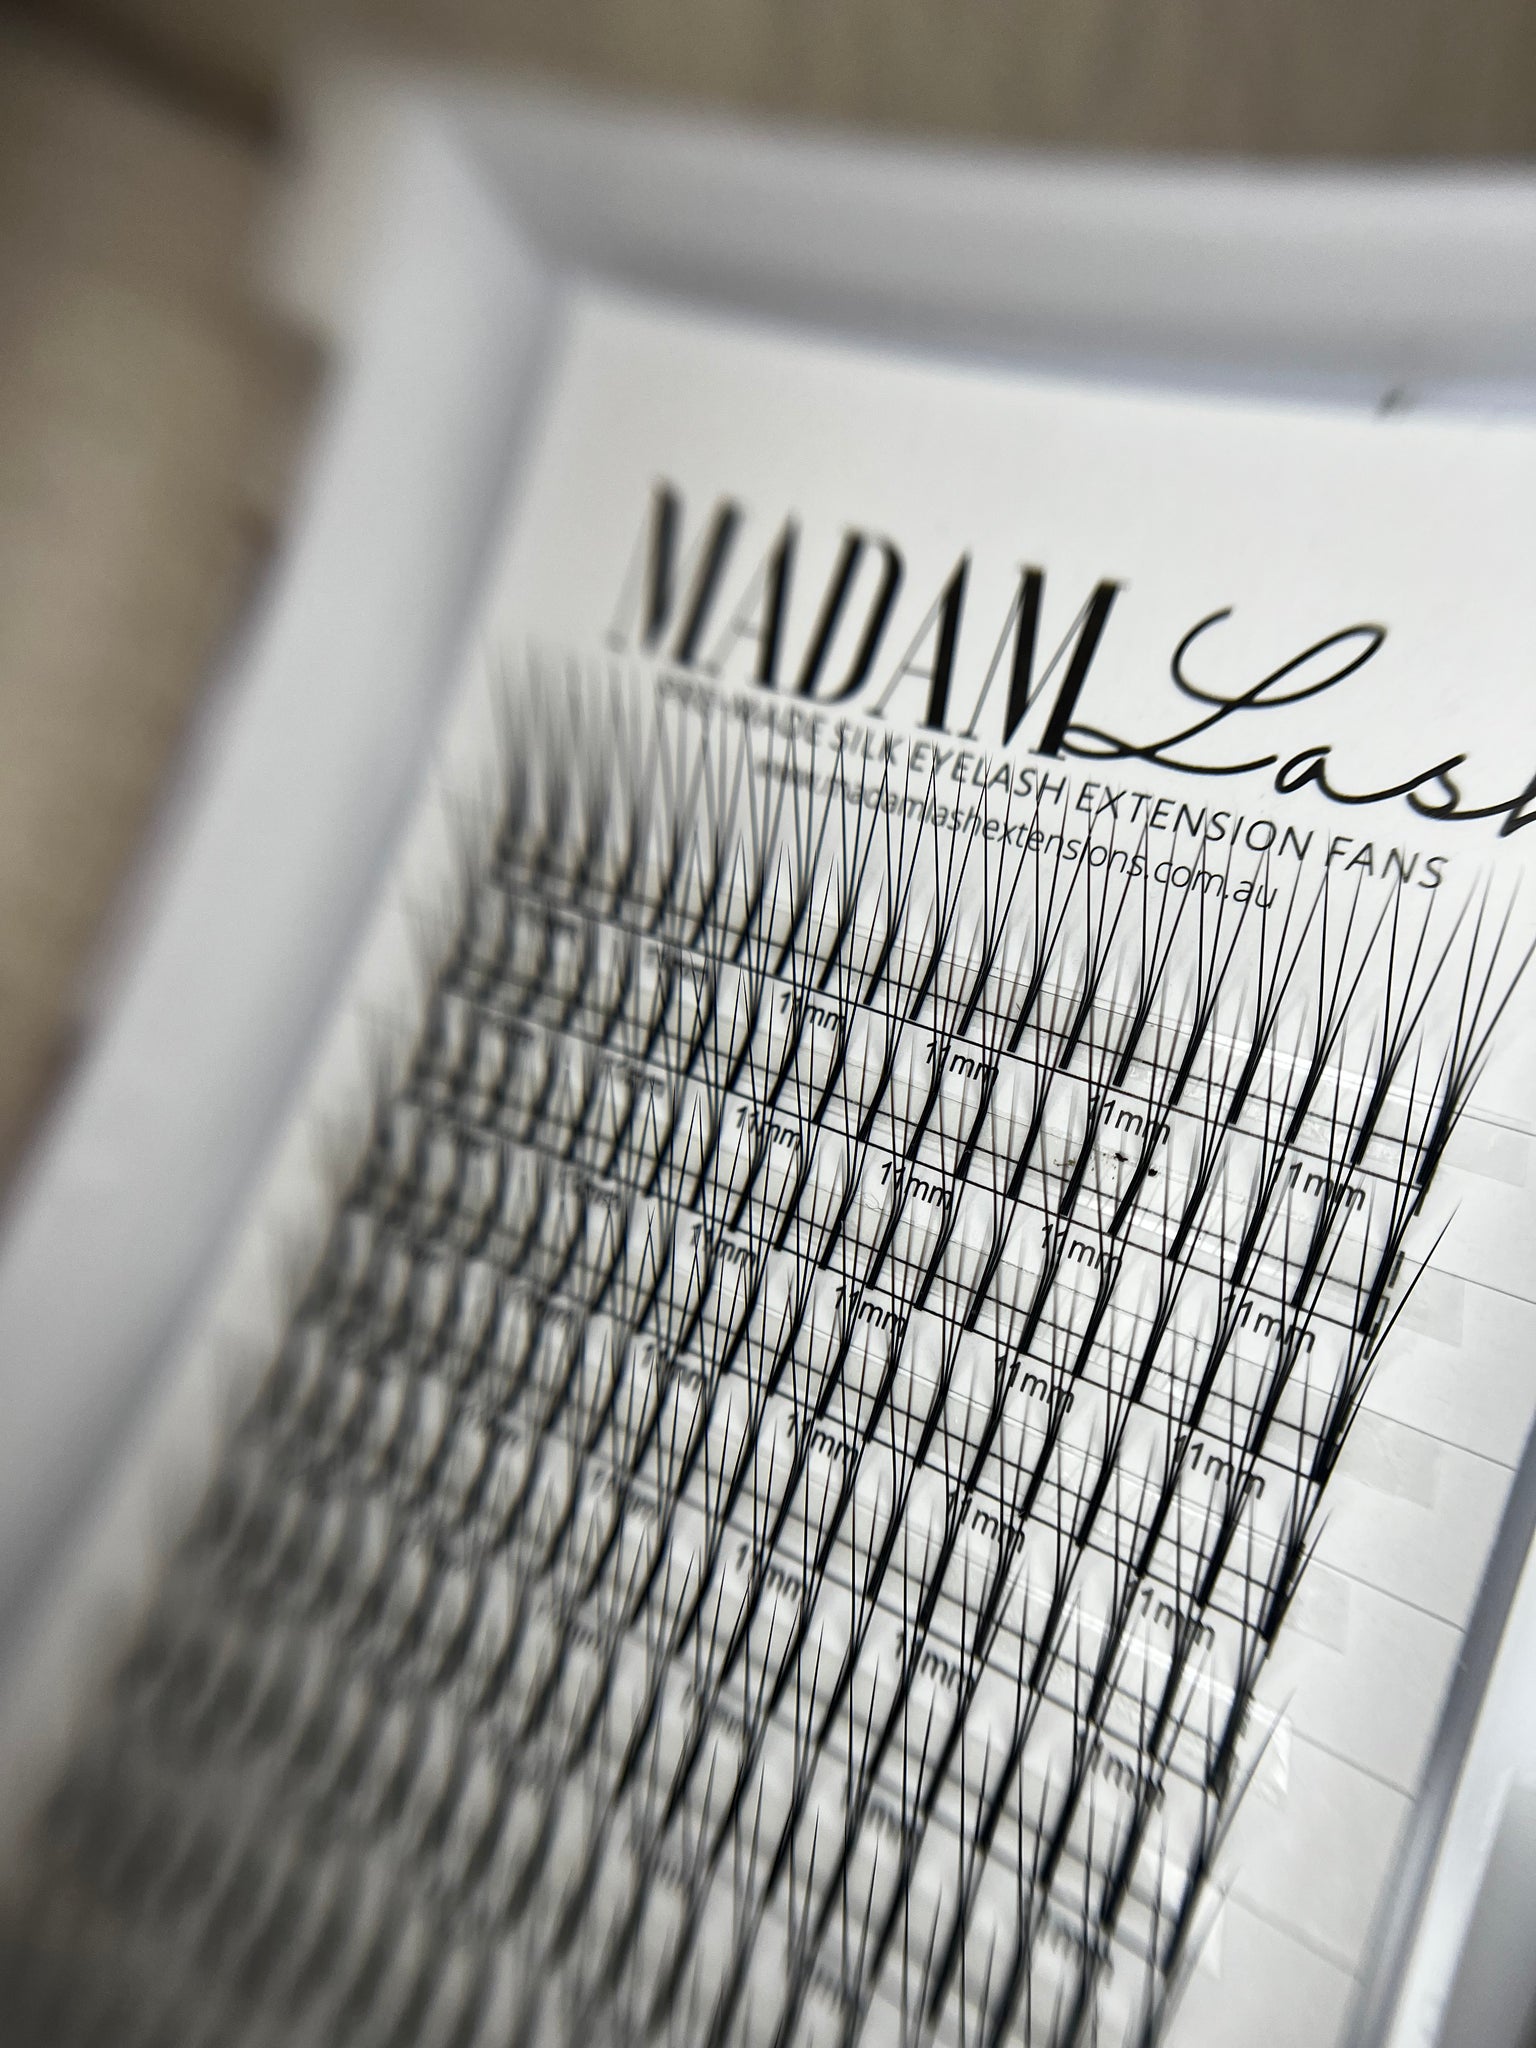 MADAM Lash
PRE-MADE SILK EYELASH EXTENSION FANS
www.madamlashextensions.com.au
11mm 11mm 11mm 11mm
11mm 11mm 11mm 11mm
11mm 11mm 11mm 11mm
11mm 11mm 11mm 11mm
11mm 11mm 11mm